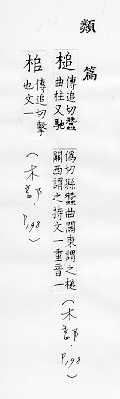 類篇
槌 傳追切蠶
曲柱又馳
偽切縣蠶曲關東謂之槌
關西謂之持文一重音一
(木部．P.198)
桘 傳追切擊
也文一
(木部 P.198)